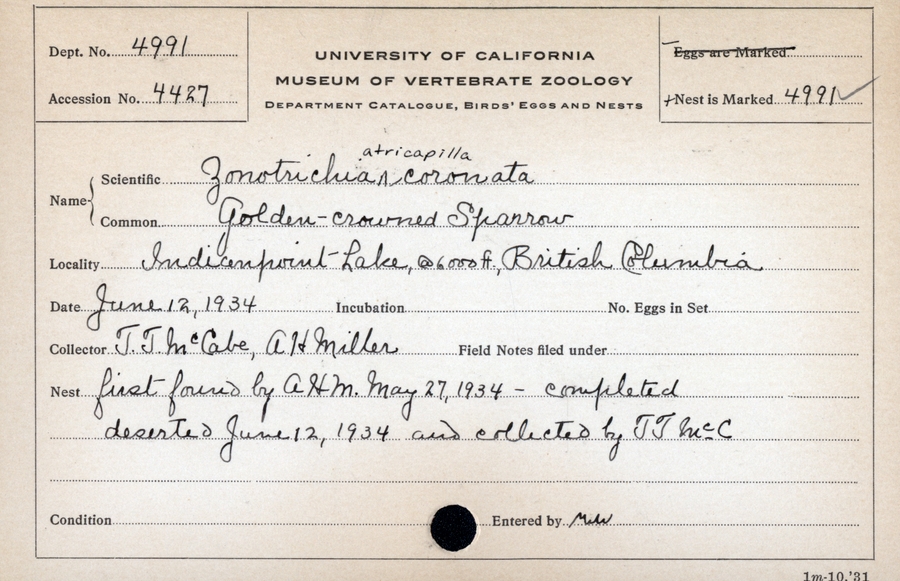 Dept. No. 4991
UNIVERSITY OF CALIFORNIA
MUSEUM OF VERTEBRATE ZOOLOGY
DEPARTMENT CATALOGUE, BIRDS' EGGS AND NESTS
Eggs are Marked
Accession No. 4427
+Nest is Marked 4991 ✓
atricapilla
Name { Scientific Zonotrichia ^ coronata
Common Golden-crowned Sparrow
Locality Indianpoint Lake, @6000 ft., British Columbia
Date June 12, 1934 Incubation No. Eggs in Set
Collector T.T. McCabe, A H Miller Field Notes filed under
Nest first found by A.H.M. May 27, 1934 - completed
deserted June 12, 1934 and collected by TT McC
Condition Entered by
1m-10,'31